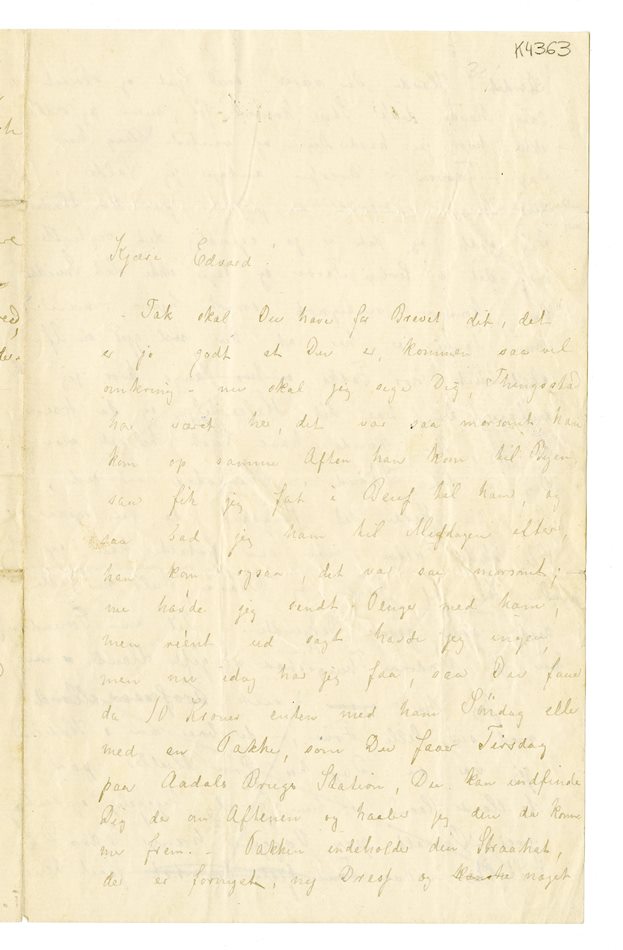 K4363
Kjære Edvard.
- Tak skal Du have for Brevet dit, det
er jo godt at Du er, kommen saa vel
omkring - nu skal jeg sige Dig, Thingsstad
har været her, det var saa morsomt, han
kom op samme Aften han kom til Byen,
saa fik jeg fat i Beuf til ham, og
saa bad jeg ham til Middagen efter,
han kom ogsaa, det var saa morsomt; -
nu havde jeg sendt Penge med ham,
men reent ud sagt havde jeg ingen,
men nu idag har jeg faa, saa Du faaer
da 10 Kroner enten med ham Söndag eller
med en Pakke, som Du faaer Tirsdag
paa Aadals Brugs Station, Du kan indfinde
Dig der om Aftenen og haaber jeg den da kommer
frem. - Pakken indeholder din Straahat,
der er fornyet, ny Dress og kanske noget